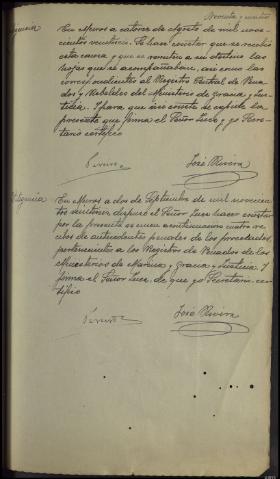 Noventa y cuatro
Diligencia En Muros a catorce de Agosto de mil nove-
cientos veintiuno. Se hace constar que se recibió
esta causa y que se remiten a su destino las
hojas que se acompañaban, así como las
correspondientes al Registro Central de Pena-
dos y Rebeldes del Ministerio de Gracia y Jus-
ticia. Y para que así conste se expide la
presente que firma el Señor Juez, y yo Secre-
tario certifico
José Rivera
Diligencia En Muros a dos de Septiembre de mil novecien-
tos dispuso el Señor Juez hacer constar
por la presente se unen a continuación cuatro
de antecedentes penales de los procesados,
pertenecientes a los Registros de Penados de los
Ministerios de Marina y Gracia y Justicia. Y
firma el Señor Juez, de que yo Secretario cer-
tifico
José Rivera